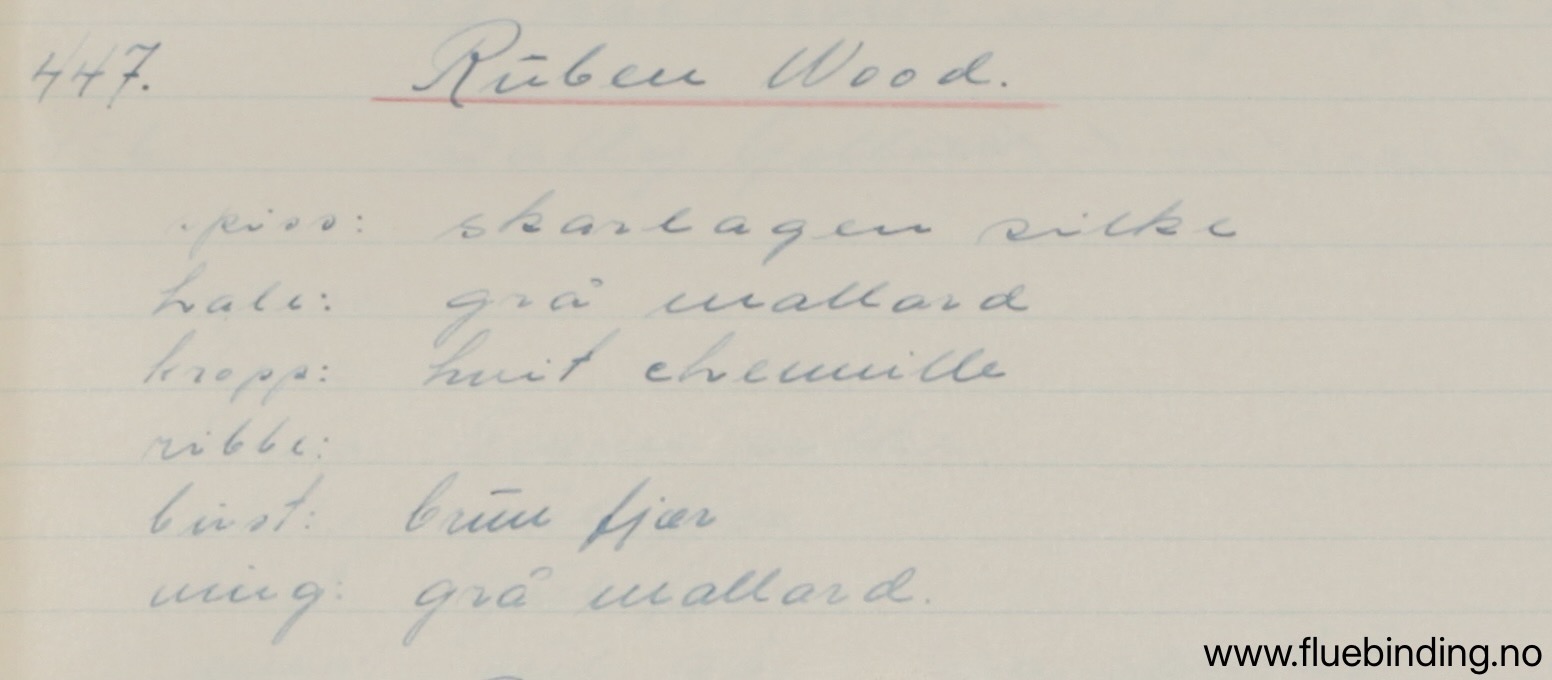 447. Rūben Wood.
spiss: skarlagen silke
hale: grå mallard
kropp: hvit chennille
ribbe:
bust: brūn fjær
ving: grå mallard.
www.fluebinding.no